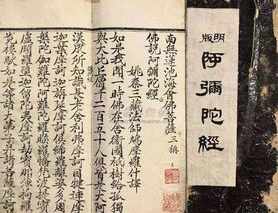 明版
阿彌陀經
南無蓮池海會佛菩薩三稱
佛說阿彌陀經
姚秦三藏法師鳩摩羅什譯
如是我聞一時佛在舍衛國祇樹給孤獨
與大比丘僧千二百五十人俱皆是大阿
漢眾所知識長老舍利弗摩訶目犍連
迦葉摩訶迦旃延摩訶俱絺羅離婆多周
槃陀伽難陀阿難陀羅睺羅憍梵波提
盧頗羅墮迦留陀夷摩訶劫賓那薄
樓馱如是等諸大弟子并諸菩薩